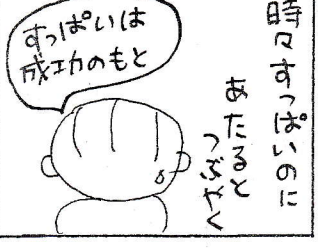 時々すっぱいのに
あたると
つぶやく
すっぱいは
成功のもと